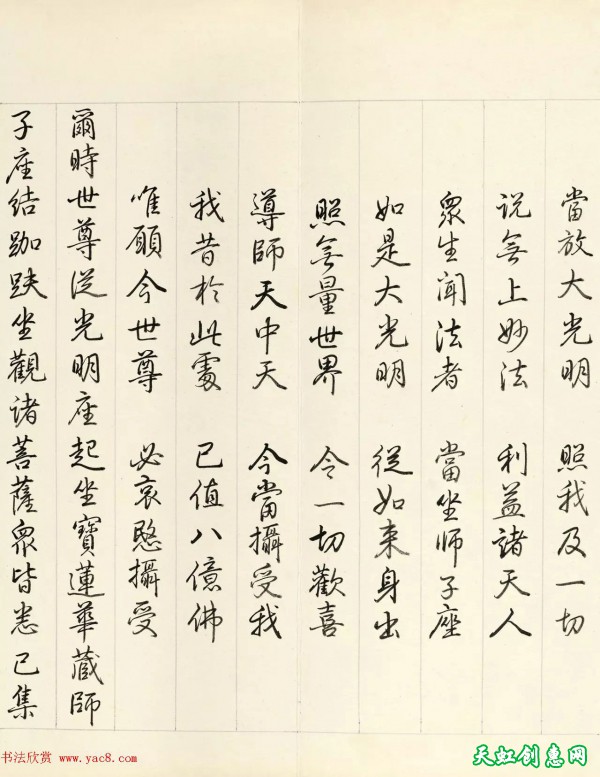 當放大光明 照我及一切
说無上妙法 利益諸天人
眾生闻法者 當坐师子座
如是大光明 從如来身出
照無量世界 令一切歡喜
導師天中天 今當攝受我
我昔於此處 已值八億佛
唯願今世尊 必哀愍攝受
爾時世尊從光明座起坐寶蓮華藏師
子座結跏趺坐觀諸菩薩眾皆悉已集
书法欣赏 www.yac8.com
天虹创意网